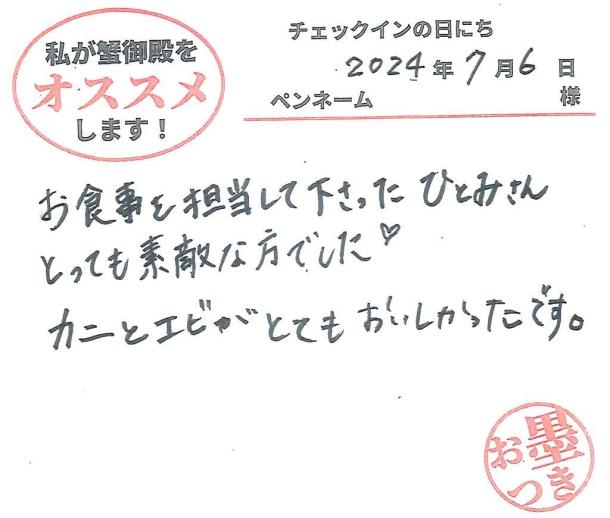 私が蟹御殿を
オススメ
します!
チェックインの日にち
2024年7月6日
ペンネーム 様
お食事を担当して下さった ひとみさん
とっても素敵な方でした♡
カニとエビがとてもおいしかったです。
お墨つき